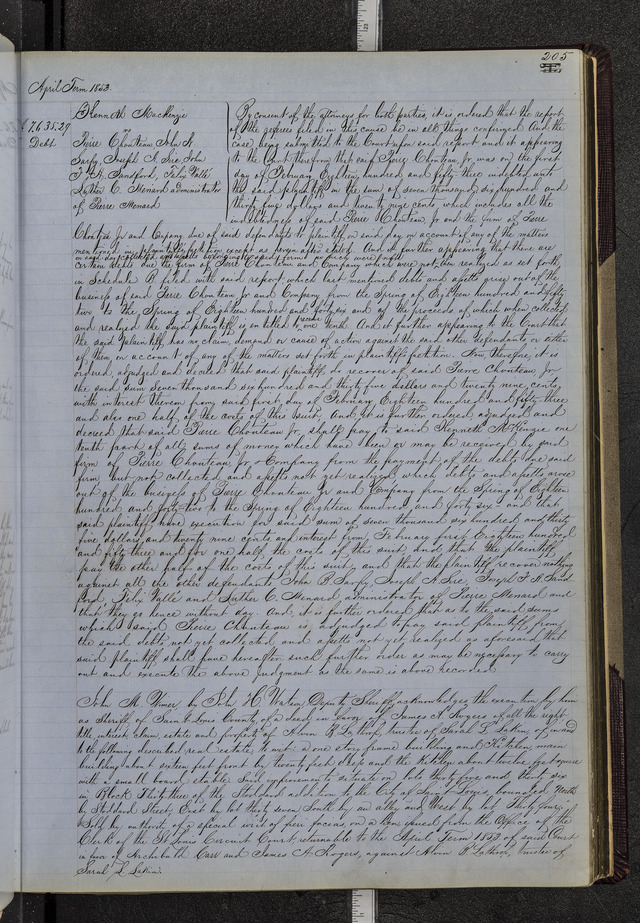 205
April Term 1853.
Kenneth Mackenzie
vs
Pierre Chouteau John B
Sarpy, Joseph A Sire John
F. A. Sandford, Felix Vallé
Luther C. Menard administrator
of Pierre Menard
$7.635.29
Debt
By consent of the attorneys for both parties, it is ordered that the report
of the referees filed in this cause be in all things confirmed And the
case being submitted to the Court upon said report and it appearing
to the Court therefrom that said Pierre Chouteau Jr was on the first
day of February Eighteen hundred and fifty three indebted unto
the said plaintiff in the sum of seven thousand six hundred and
thirty five dollars and twenty nine cents which includes all the
indebtedness of said Pierre Chouteau Jr and the firm of Pierre
Chouteau Jr and Company due of said defendants to plaintiff on said day on account of any of the matters
mentioned in plaintiffs petition except as herein after stated. And it further appearing that there are
certain debts due the firm of Pierre Chouteau and Company which were not then realized as set forth
in Schedule B filed with said report which last mentioned debts and assets arise out of the
business of said Pierre Chouteau Jr and Company from the Spring of Eighteen hundred and forty
two to the Spring of Eighteen hundred and forty six and of the proceeds of which when collected
and realized the said plaintiff is entitled to receive one tenth. And it further appearing to the Court that
the said plaintiff has no claim, demand or cause of action against the said other defendants or either
of them, on account of any of the matters set forth in plaintiffs petition. Now, therefore, it is
ordered, adjudged and decreed that said plaintiff do recover of said Pierre Chouteau Jr
the said sum seven thousand six hundred and thirty five dollars and twenty nine cents,
with interest thereon from said first day of February Eighteen hundred and fifty three
and also one half of the costs of this suit, And it is further ordered adjudged and
decreed that said Pierre Chouteau Jr shall pay to said Kenneth McKenzie one
tenth part of all sums of money which have been or may be received by said
firm of Pierre Chouteau Jr & Company from the payment of the debts due said
firm but not collected, and assets not yet realized which debts and assets arose
out of the business of Pierre Chouteau Jr and Company from the Spring of Eighteen
hundred and forty two to the Spring of Eighteen hundred and forty six and that
said plaintiff have execution for said sum of seven thousand six hundred and thirty
five dollars and twenty nine cents and interest from February first Eighteen hundred
and fifty three and for one half the costs of this suit. And that the plaintiff
pay the other half of the costs of this suit and that the plaintiff recover nothing
against all the other defendants John B Sarpy, Joseph A Sire, Joseph F. A. Sand
ford, Felix Vallé and Luther C. Menard administrator of Pierre Menard and
that they go hence without day. And, it is further ordered that as to the said sums
which said Pierre Chouteau is adjudged to pay said plaintiff, from
the said debts not yet collected and assets not yet realized as aforesaid that
said plaintiff shall have hereafter such further order as may be necessary to carry
out and execute the above judgment as the same is above recorded.
John M. Wimer, by John H Watson, Deputy Sheriff, acknowledges the execution by him
as Sheriff of Saint Louis County, of a deed in favor of James A Rogers of all the right
title, interest, claim, estate and property of Alvon P Lathrop, trustee of Sarah L Larkin, of in and
to the following described real estate, to wit: a one story frame building and Kitchen main
building about sixteen feet front by twenty feet deep and the kitchen about twelve feet square
with a small board stable Said improvements situate on lots thirty five and thirty six
in Block Thirteen of the Stoddard addition to the City of Saint Louis, bounded North
by Stoddard Street, East by lot thirty seven South by an alley and West by lot thirty four.
Sold by authority of a special writ of fieri facias issued from the Office of the
Clerk of the St Louis Circuit Court, returnable to the April Term 1853 of said Court
in favor of Archibald Carr and James A. Rogers, against Alvon P. Lathrop, trustee of
Sarah L. Larkin.